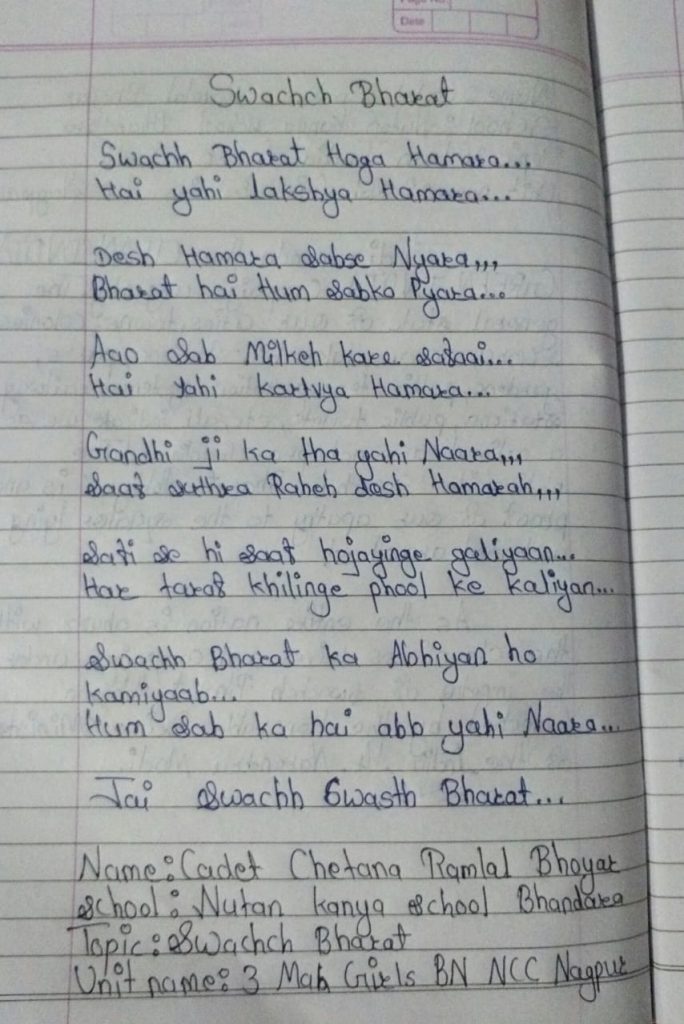 Page No
Date
Swachch Bharat
Swachh Bharat Hoga Hamara...
Hai yahi lakshya Hamara...
Desh Hamara sabse Nyara,,,
Bharat hai Hum sabko Pyara...
Aao sab Milkeh kare safaai...
Hai yahi kartvya Hamara...
Gandhi ji ka tha yahi Naara,,,
saaf suthra Raheh desh Hamarah,,,
safi se hi saaf hojayinge galiyaan...
Har taraf khilinge phool ke kaliyan...
swachh Bharat ka Abhiyan ho
kamiyaab...
Hum sab ka hai abb yahi Naara...
Jai swachh swasth Bharat...
Name: Cadet Chetana Ramlal Bhoyar
school: Nutan kanya school Bhandara
Topic: Swachch Bharat
Unit name: 3 Mah Girls BN NCC Nagpur